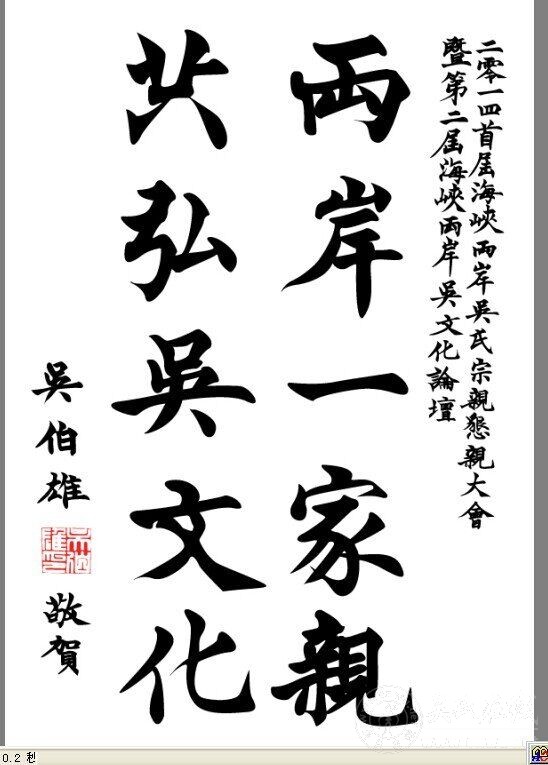 二零一四首屆海峽兩岸吳氏宗親懇親大會
暨第二屆海峽兩岸吳文化論壇
兩岸一家親
共弘吳文化
吳伯雄
敬賀
0.2 秒